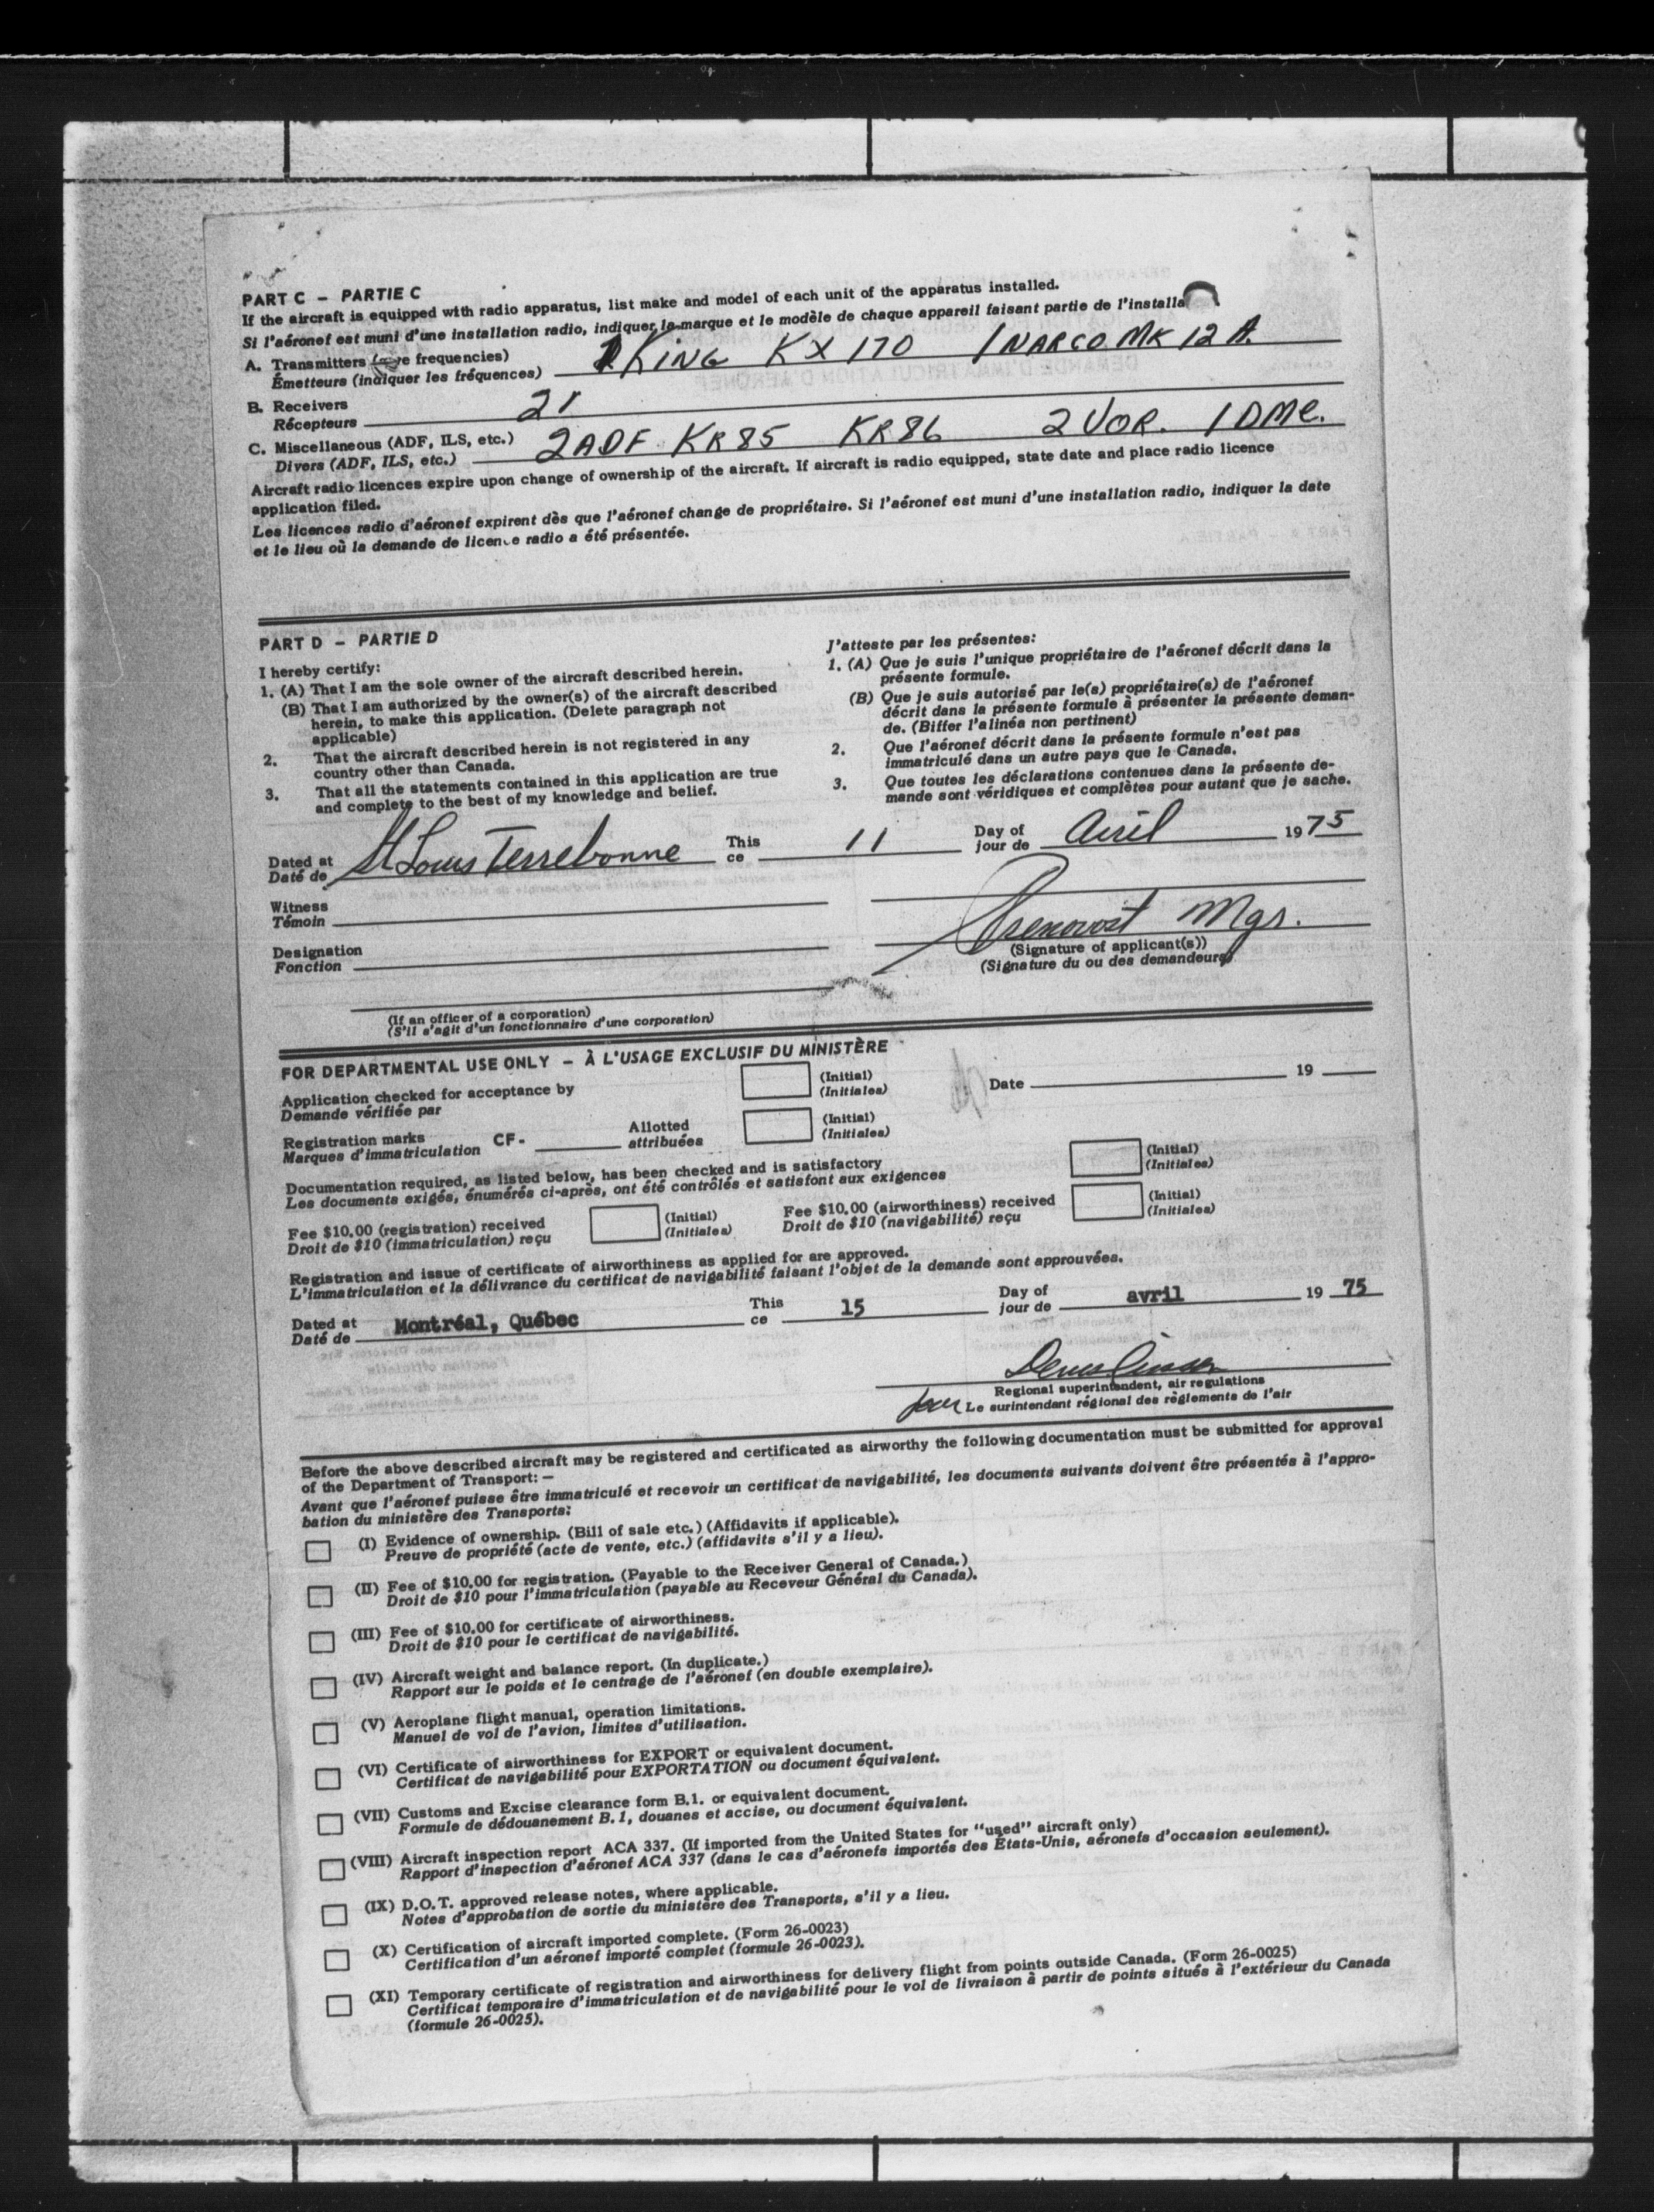 PART C – PARTIE C
If the aircraft is equipped with radio apparatus, list make and model of each unit of the apparatus installed.
Si l'aéronef est muni d'une installation radio, indiquer la marque et le modèle de chaque appareil faisant partie de l'installa
A. Transmitters frequencies) 1 KING KX 170 1 NARCO MK 12 A.
Émetteurs (indiquer les fréquences)
B. Receivers
Récepteurs 21
C. Miscellaneous (ADF, ILS, etc.) 2 ADF KR85 KR86 2 VOR. 1 DME.
Divers (ADF, ILS, etc.)
Aircraft radio licences expire upon change of ownership of the aircraft. If aircraft is radio equipped, state date and place radio licence
application filed.
Les licences radio d'aéronef expirent dès que l'aéronef change de propriétaire. Si l'aéronef est muni d'une installation radio, indiquer la date
et le lieu où la demande de licence radio a été présentée.
PART D – PARTIE D
I hereby certify:
1. (A) That I am the sole owner of the aircraft described herein.
(B) That I am authorized by the owner(s) of the aircraft described
herein, to make this application. (Delete paragraph not
applicable)
2. That the aircraft described herein is not registered in any
country other than Canada.
3. That all the statements contained in this application are true
and complete to the best of my knowledge and belief.
J'atteste par les présentes:
1. (A) Que je suis l'unique propriétaire de l'aéronef décrit dans la
présente formule.
(B) Que je suis autorisé par le(s) propriétaire(s) de l'aéronef
décrit dans la présente formule à présenter la présente deman-
de. (Biffer l'alinéa non pertinent)
2. Que l'aéronef décrit dans la présente formule n'est pas
immatriculé dans un autre pays que le Canada.
3. Que toutes les déclarations contenues dans la présente de-
mande sont véridiques et complètes pour autant que je sache.
Dated at St Louis Terrebonne This 11 Day of Avril 1975
Daté de ce jour de
Witness
Témoin
Prenovost Mgr.
Designation
Fonction
(Signature of applicant(s))
(Signature du ou des demandeurs)
(If an officer of a corporation)
(S'il s'agit d'un fonctionnaire d'une corporation)
FOR DEPARTMENTAL USE ONLY – À L'USAGE EXCLUSIF DU MINISTÈRE
Application checked for acceptance by (Initial) Date 19
Demande vérifiée par (Initiales)
Registration marks CF- Allotted (Initial)
Marques d'immatriculation attribuées (Initiales)
Documentation required, as listed below, has been checked and is satisfactory (Initial)
Les documents exigés, énumérés ci-après, ont été contrôlés et satisfont aux exigences (Initiales)
Fee $10.00 (registration) received (Initial) Fee $10.00 (airworthiness) received (Initial)
Droit de $10 (immatriculation) reçu (Initiales) Droit de $10 (navigabilité) reçu (Initiales)
Registration and issue of certificate of airworthiness as applied for are approved.
L'immatriculation et la délivrance du certificat de navigabilité faisant l'objet de la demande sont approuvées.
Dated at Montréal, Québec This 15 Day of avril 19 75
Daté de ce jour de
Regional superintendent, air regulations
pour Le surintendant régional des règlements de l'air
Before the above described aircraft may be registered and certificated as airworthy the following documentation must be submitted for approval
of the Department of Transport: –
Avant que l'aéronef puisse être immatriculé et recevoir un certificat de navigabilité, les documents suivants doivent être présentés à l'appro-
bation du ministère des Transports:
(I) Evidence of ownership. (Bill of sale etc.) (Affidavits if applicable).
Preuve de propriété (acte de vente, etc.) (affidavits s'il y a lieu).
(II) Fee of $10.00 for registration. (Payable to the Receiver General of Canada.)
Droit de $10 pour l'immatriculation (payable au Receveur Général du Canada).
(III) Fee of $10.00 for certificate of airworthiness.
Droit de $10 pour le certificat de navigabilité.
(IV) Aircraft weight and balance report. (In duplicate.)
Rapport sur le poids et le centrage de l'aéronef (en double exemplaire).
(V) Aeroplane flight manual, operation limitations.
Manuel de vol de l'avion, limites d'utilisation.
(VI) Certificate of airworthiness for EXPORT or equivalent document.
Certificat de navigabilité pour EXPORTATION ou document équivalent.
(VII) Customs and Excise clearance form B.1. or equivalent document.
Formule de dédouanement B.1, douanes et accise, ou document équivalent.
(VIII) Aircraft inspection report ACA 337. (If imported from the United States for "used" aircraft only)
Rapport d'inspection d'aéronef ACA 337 (dans le cas d'aéronefs importés des États-Unis, aéronefs d'occasion seulement).
(IX) D.O.T. approved release notes, where applicable.
Notes d'approbation de sortie du ministère des Transports, s'il y a lieu.
(X) Certification of aircraft imported complete. (Form 26-0023)
Certification d'un aéronef importé complet (formule 26-0023).
(XI) Temporary certificate of registration and airworthiness for delivery flight from points outside Canada. (Form 26-0025)
Certificat temporaire d'immatriculation et de navigabilité pour le vol de livraison à partir de points situés à l'extérieur du Canada
(formule 26-0025).